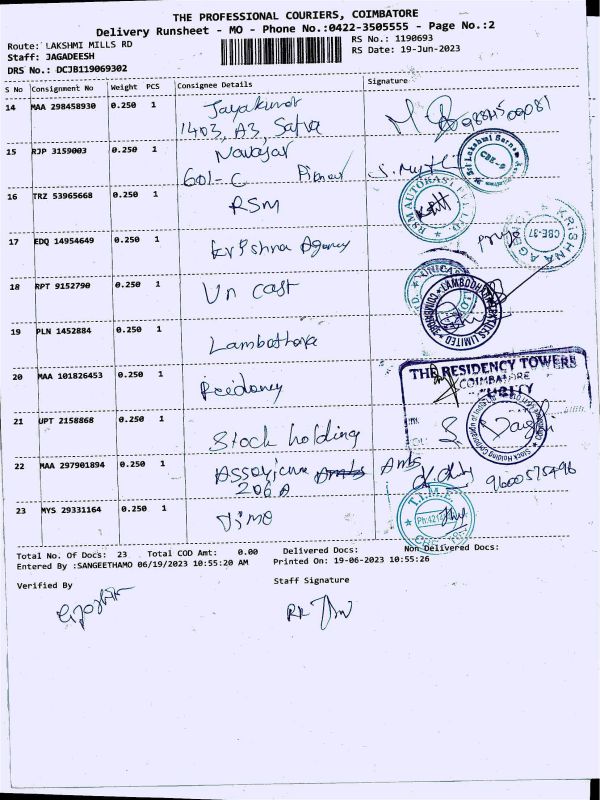 THE PROFESSIONAL COURIERS, COIMBATORE
Delivery Runsheet - MO - Phone No.:0422-3505555 - Page No.:2
Route: LAKSHMI MILLS RD
RS No.: 1190693
Staff: JAGADEESH
RS Date: 19-Jun-2023
DRS No.: DCJB119069302
S No Consignment No Weight PCS Consignee Details Signature
14 MAA 298458930 0.250 1 Jayakumar
1403, A3, Satva
15 RJP 3159003 0.250 1 Navajar
601-C
16 TRZ 53965668 0.250 1 RSM
RSM AUTOBASE
17 EDQ 14954649 0.250 1 Krishna Agency
KRISHNA AGENCY CBE-37
18 RPT 9152790 0.250 1 Un cast
19 PLN 1452884 0.250 1 Lambothara
20 MAA 101826453 0.250 1 Residency
THE RESIDENCY TOWERS
COIMBATORE
21 UPT 2158868 0.250 1 Stock holding
22 MAA 297901894 0.250 1 Ambs
206 A
9600575496
23 MYS 29331164 0.250 1 Time
T.I.M.E.
Total No. Of Docs: 23 Total COD Amt: 0.00 Delivered Docs: Non Delivered Docs:
Entered By :SANGEETHAMO 06/19/2023 10:55:20 AM Printed On: 19-06-2023 10:55:26
Verified By Staff Signature